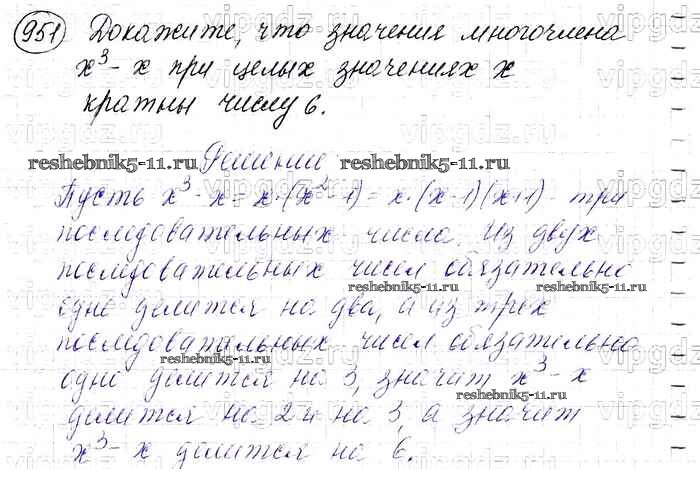 951 Докажите, что значения многочлена
x³ - x при целых значениях x
кратны числу 6.
reshebnik5-11.ru Решение reshebnik5-11.ru
Пусть x³ - x = x·(x² - 1) = x·(x-1)(x+1) - три
последовательных числа. Из двух
последовательных чисел обязательно
reshebnik5-11.ru reshebnik5-11.ru
одно делится на два, а из трех
последовательных чисел обязательно
reshebnik5-11.ru
одно делится на 3, значит x³ - x
reshebnik5-11.ru
делится на 2 и на 3, а значит
x³ - x делится на 6.